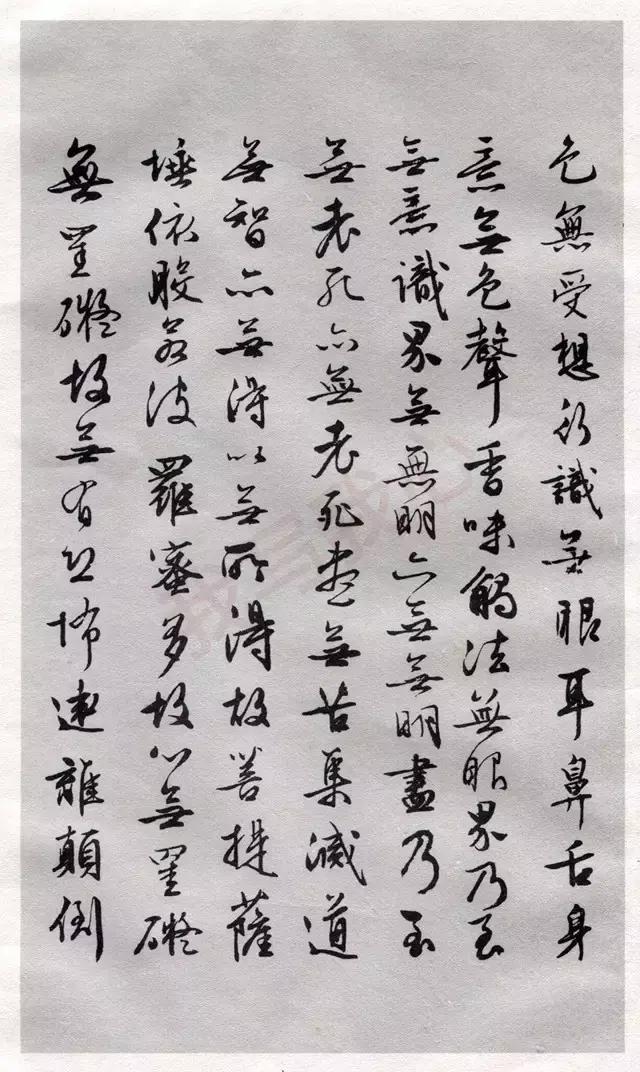 色無受想行識無眼耳鼻舌身
意無色聲香味觸法無眼界乃至
無意識界無無明亦無無明盡乃至
無老死亦無老死盡無苦集滅道
無智亦無得以無所得故菩提薩
埵依般若波羅蜜多故心無罣礙
無罣礙故無有恐怖遠離顛倒